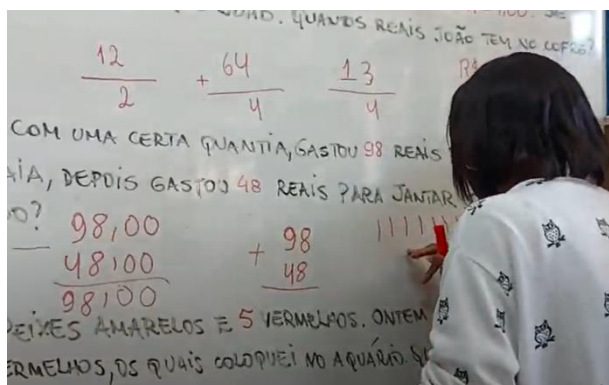 QUANTOS REAIS JOÃO TEM NO COFRE?
12 + 64 13
2 4 4
COM UMA CERTA QUANTIA, GASTOU 98 REAIS
DEPOIS GASTOU 48 REAIS PARA JANTAR
98,00 + 98
48,00 48
98,00
PEIXES AMARELOS E 5 VERMELHOS. ONTEM
VERMELHOS, OS QUAIS COLOQUEI NO AQUÁRIO.